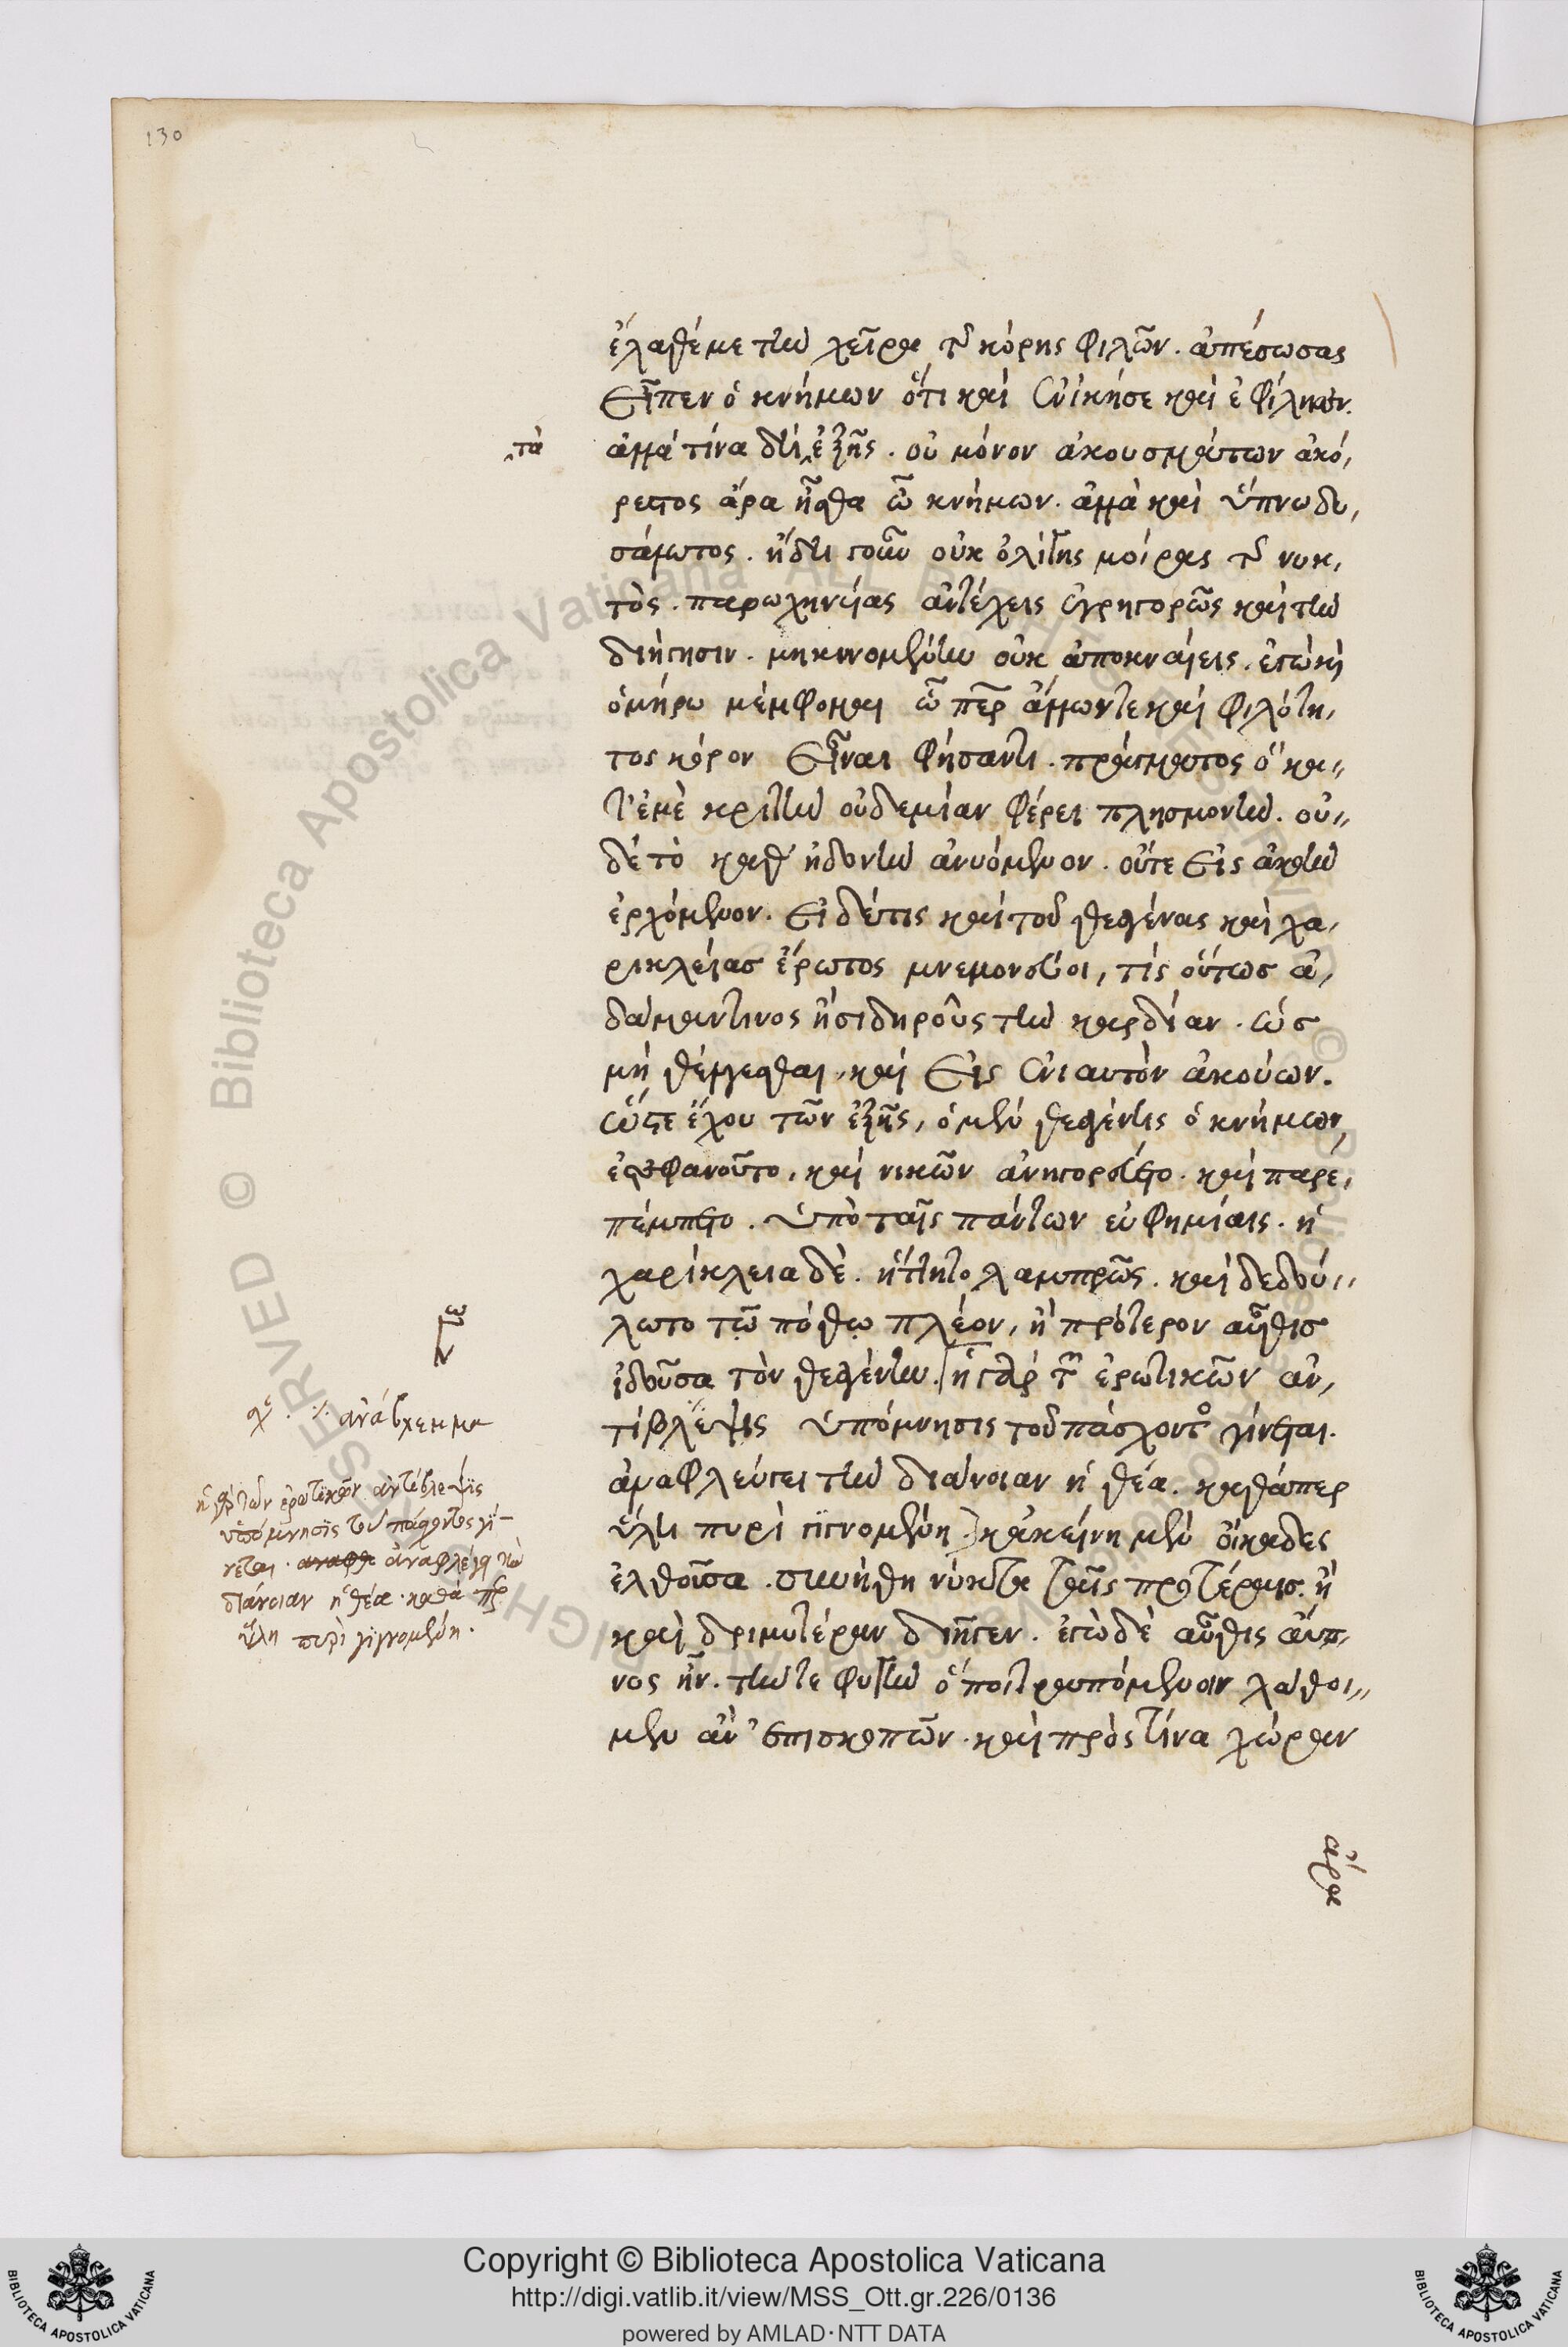 130
ἔλαθέ με τὴν χεῖρα τῆς κόρης φιλῶν. ἀπέσωσας
εἶπεν ὁ κνήμων ὅτι καὶ ἐνίκησε καὶ ἐφίλησεν.
τὰ
ἀλλὰ τίνα δὴ ἑξῆς. οὐ μόνον ἀκουσμάτων ἀκό,
ρεστος ἄρα ἦσθα ὦ κνήμων. ἀλλὰ καὶ ὕπνω δυ,
σάλωτος. ἤδη γοῦν οὐκ ὀλίγης μοίρας τῆς νυκ,
τὸς. παρωχηκυίας ἀντέχεις ἐγρηγορῶς καὶ τὴν
διήγησιν. μηκυνομένην οὐκ ἀποκναίεις. ἐγὼ καὶ
ὁμήρω μέμφομαι ὦ πάτερ ἄλλων τε καὶ φιλότη,
τος κόρον εἶναι φήσαντι. πράγματος ὃ κα,,
τ' ἐμὲ κριτὴν οὐδεμίαν φέρει πλησμονὴν. οὐ,,
δὲ τὸ καθ' ἡδονὴν ἀνυόμενον. οὔτε εἰς ἀκοὴν
ἐρχόμενον. εἰ δέ τις καὶ τοῦ θεαγένους καὶ χα,
ρικλείασ ἔρωτος μνημονεύοι, τίς οὕτωσ ἀ,
δαμάντινος ἢ σιδηροῦς τὴν καρδίαν. ὡσ
μὴ θέλγεσθαι, καὶ εἰς ἐνιαυτὸν ἀκούων.
ὥστε ἔχου τῶν ἑξῆς, ὁ μὲν θεαγένης ὁ κνήμων,
ἐστεφανοῦτο, καὶ νικῶν ἀνηγορεύετο. καὶ παρε,
πέμπετο. ὑπὸ ταῖς πάντων εὐφημίαις. ἡ
χαρίκλεια δὲ. ἥττητο λαμπρῶς. καὶ δεδού,,
λωτο τῷ πόθῳ πλέον, ἢ πρότερον αὖθισ
ἰδοῦσα τὸν θεαγένην. ἡ γὰρ τῶν ἐρωτικῶν ἀν,
τίβλεψις ὑπόμνησις τοῦ πάσχοντος γίνεται.
ἀναφλέγει τὴν διάνοιαν ἡ θέα. καθάπερ
ὕλη πυρὶ γιγνομένη κἀκείνη μὲν οἴκαδες
ἐλθοῦσα. συνήθη νύκτα ταῖς προτέραισ. ἢ
καὶ δριμυτέραν διῆγεν. ἐγὼ δὲ αὖθις ἄυπ,
νος ἦν. τήν τε φυγὴν ὅποι τραπόμενοι λάθοι,,
μεν ἂν ἐπισκοπῶν. καὶ πρὸς τίνα χώραν
ἄρα
ἀνάβλεμμα
ἡ γὰρ τῶν ἐρωτικῶν ἀντίβλεψις
ὑπόμνησις τοῦ πάσχοντος γί-
νεται. ἀναφλέγει τὴν
διάνοιαν ἡ θέα. καθάπερ
ὕλη πυρὶ γιγνομένη.
© Biblioteca Apostolica Vaticana ALL RIGHTS RESERVED
Copyright © Biblioteca Apostolica Vaticana
http://digi.vatlib.it/view/MSS_Ott.gr.226/0136
powered by AMLAD·NTT DATA
BIBLIOTECA APOSTOLICA VATICANA
BIBLIOTECA APOSTOLICA VATICANA